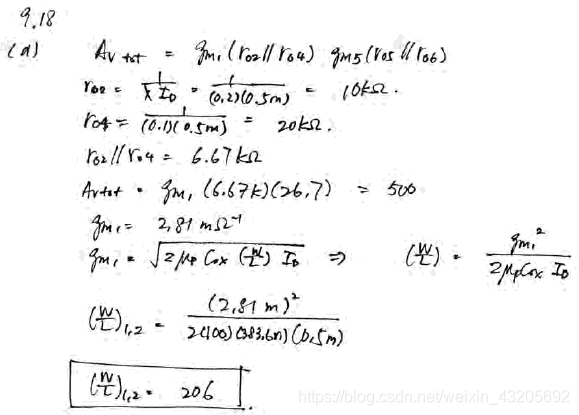 9.18
(a) Av tot = gm1 (ro2 // ro4) gm5 (ro5 // ro6)
ro2 = 1/(λ ID) = 1/((0.2)(0.5m)) = 10kΩ.
ro4 = 1/((0.1)(0.5m)) = 20kΩ.
ro2 // ro4 = 6.67 kΩ
Av tot = gm1 (6.67k)(26.7) = 500
gm1 = 2.81 mΩ⁻¹
gm1 = √(2 μp Cox (W/L) ID) ⇒ (W/L) = gm1² / (2 μp Cox ID)
(W/L)1,2 = (2.81 m)² / (2(100)(383.6n)(0.5m))
(W/L)1,2 = 206
https://blog.csdn.net/weixin_43205692